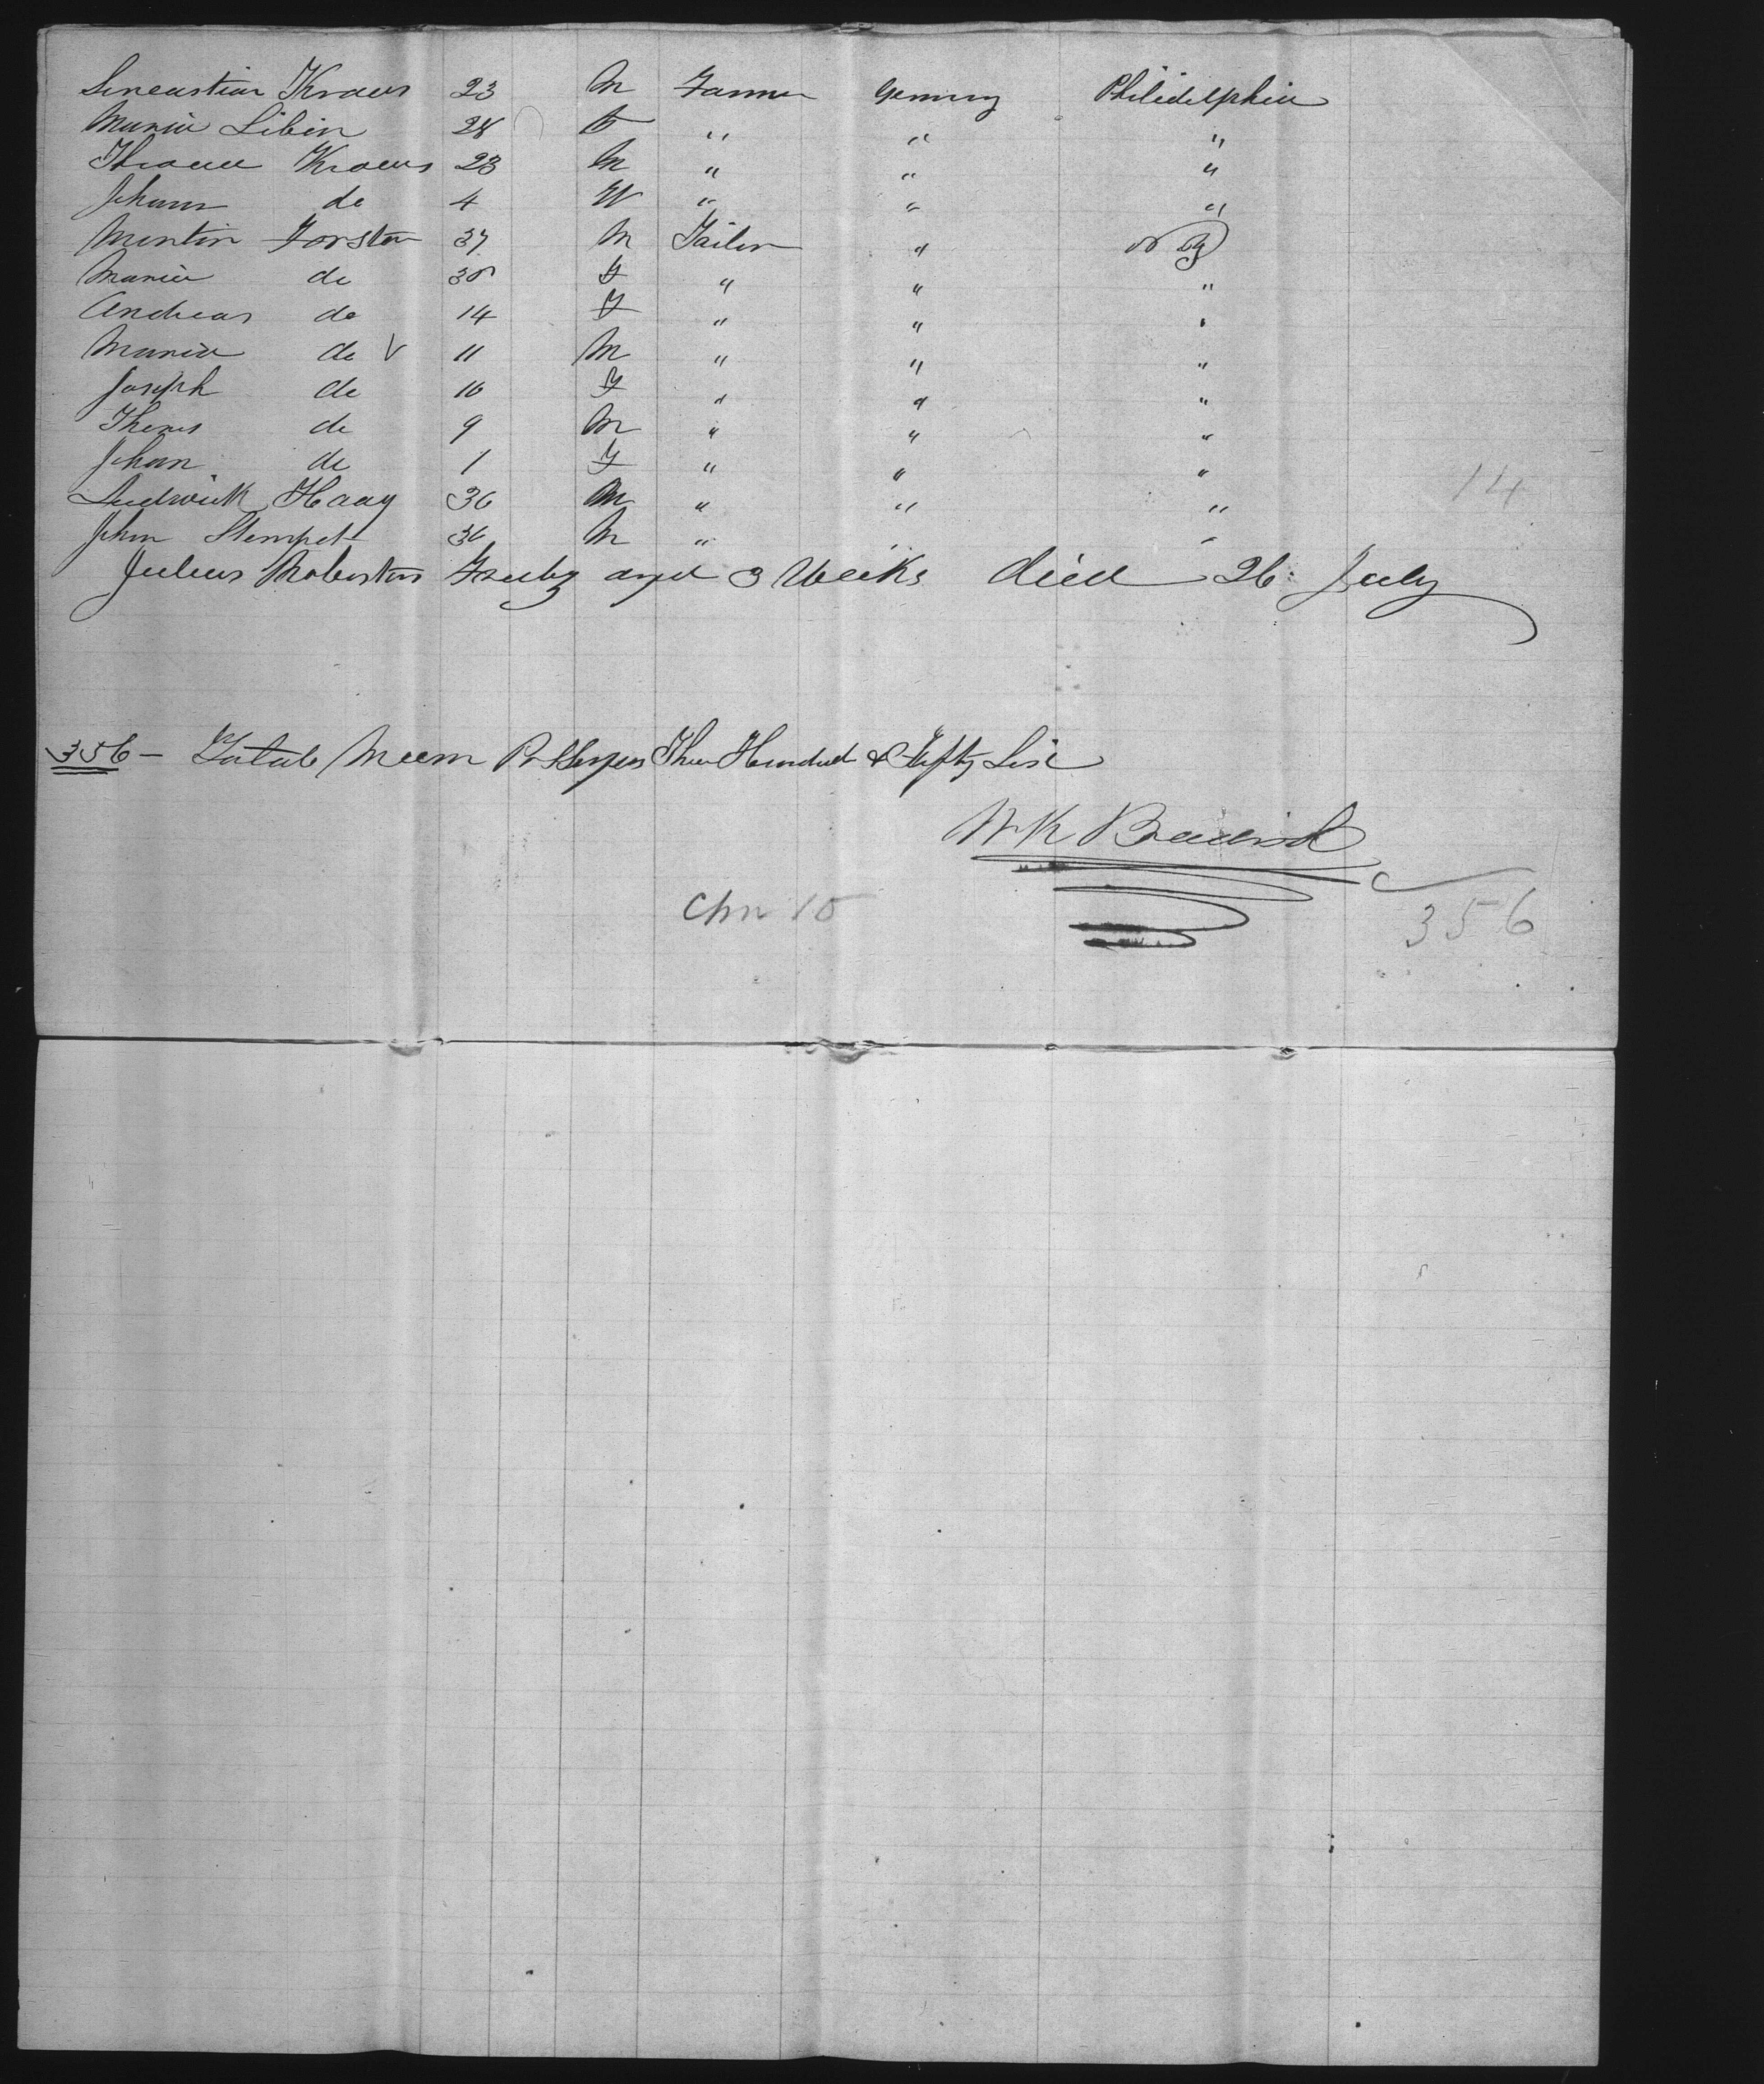 Kraus 23 M Farmer Germny Philidelphia
Maria Libin 28 F " " "
Kraus 23 M " " "
Johann do 4 " " "
Martin Forster 37 M Tailor " N Y
Maria do 38 F " " "
Andreas do 14 F " " "
Maria do V 11 M " " "
Joseph do 10 F " " "
Theres do 9 M " " "
Johan do 1 F " " "
Ludwick Haag 36 M " " "
14
John Stempel 36 M " " "
Julius aged 3 Weeks died 26 July
356 - Total Three Hundred & Fifty Six
W K
Chn 10
356